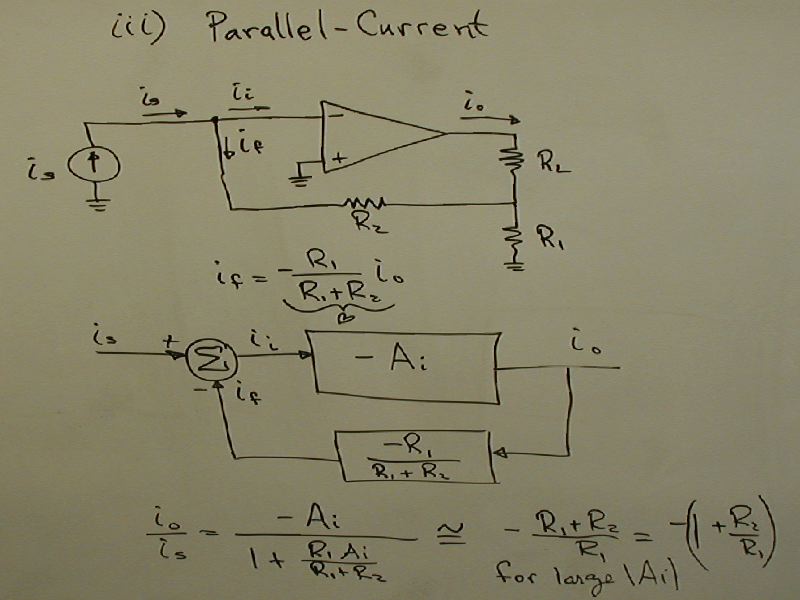 iii) Parallel-Current
is ii io
is if - + RL
R2 R1
if = -R1/(R1+R2) io
β
is + Σ ii -Ai io
- if -R1/(R1+R2)
io/is = -Ai/(1 + R1Ai/(R1+R2)) ≅ -(R1+R2)/R1 = -(1 + R2/R1)
for large |Ai|